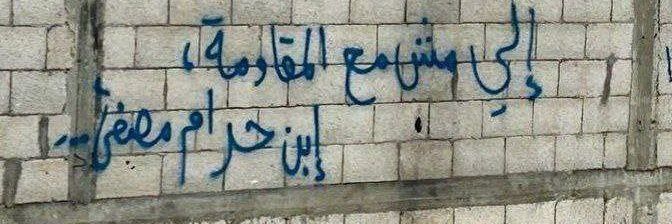 إلي مش مع المقاومة،
إبن حرام مصفى...